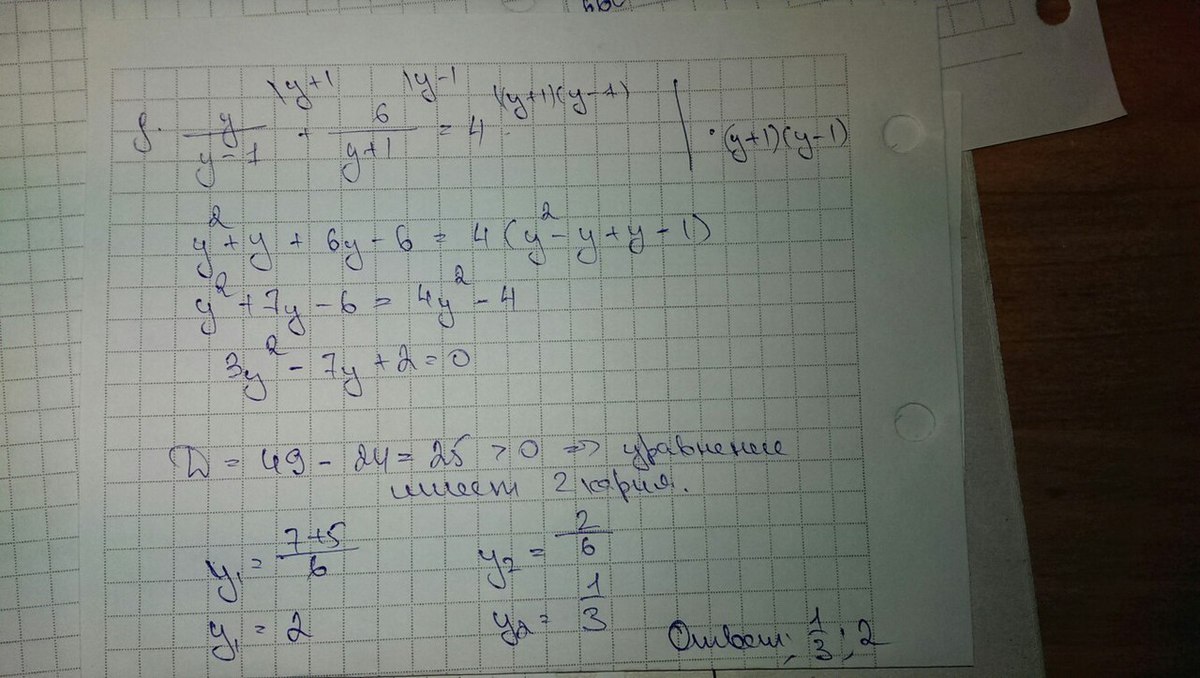 8. y/(y-1) \y+1 + 6/(y+1) \y-1 = 4 \(y+1)(y-1) | ·(y+1)(y-1)
y² + y + 6y - 6 = 4(y² - y + y - 1)
y² + 7y - 6 = 4y² - 4
3y² - 7y + 2 = 0
D = 49 - 24 = 25 > 0 => уравнение
имеет 2 корня.
y₁ = (7+5)/6 y₂ = 2/6
y₁ = 2 y₂ = 1/3
Ответ: 1/3; 2